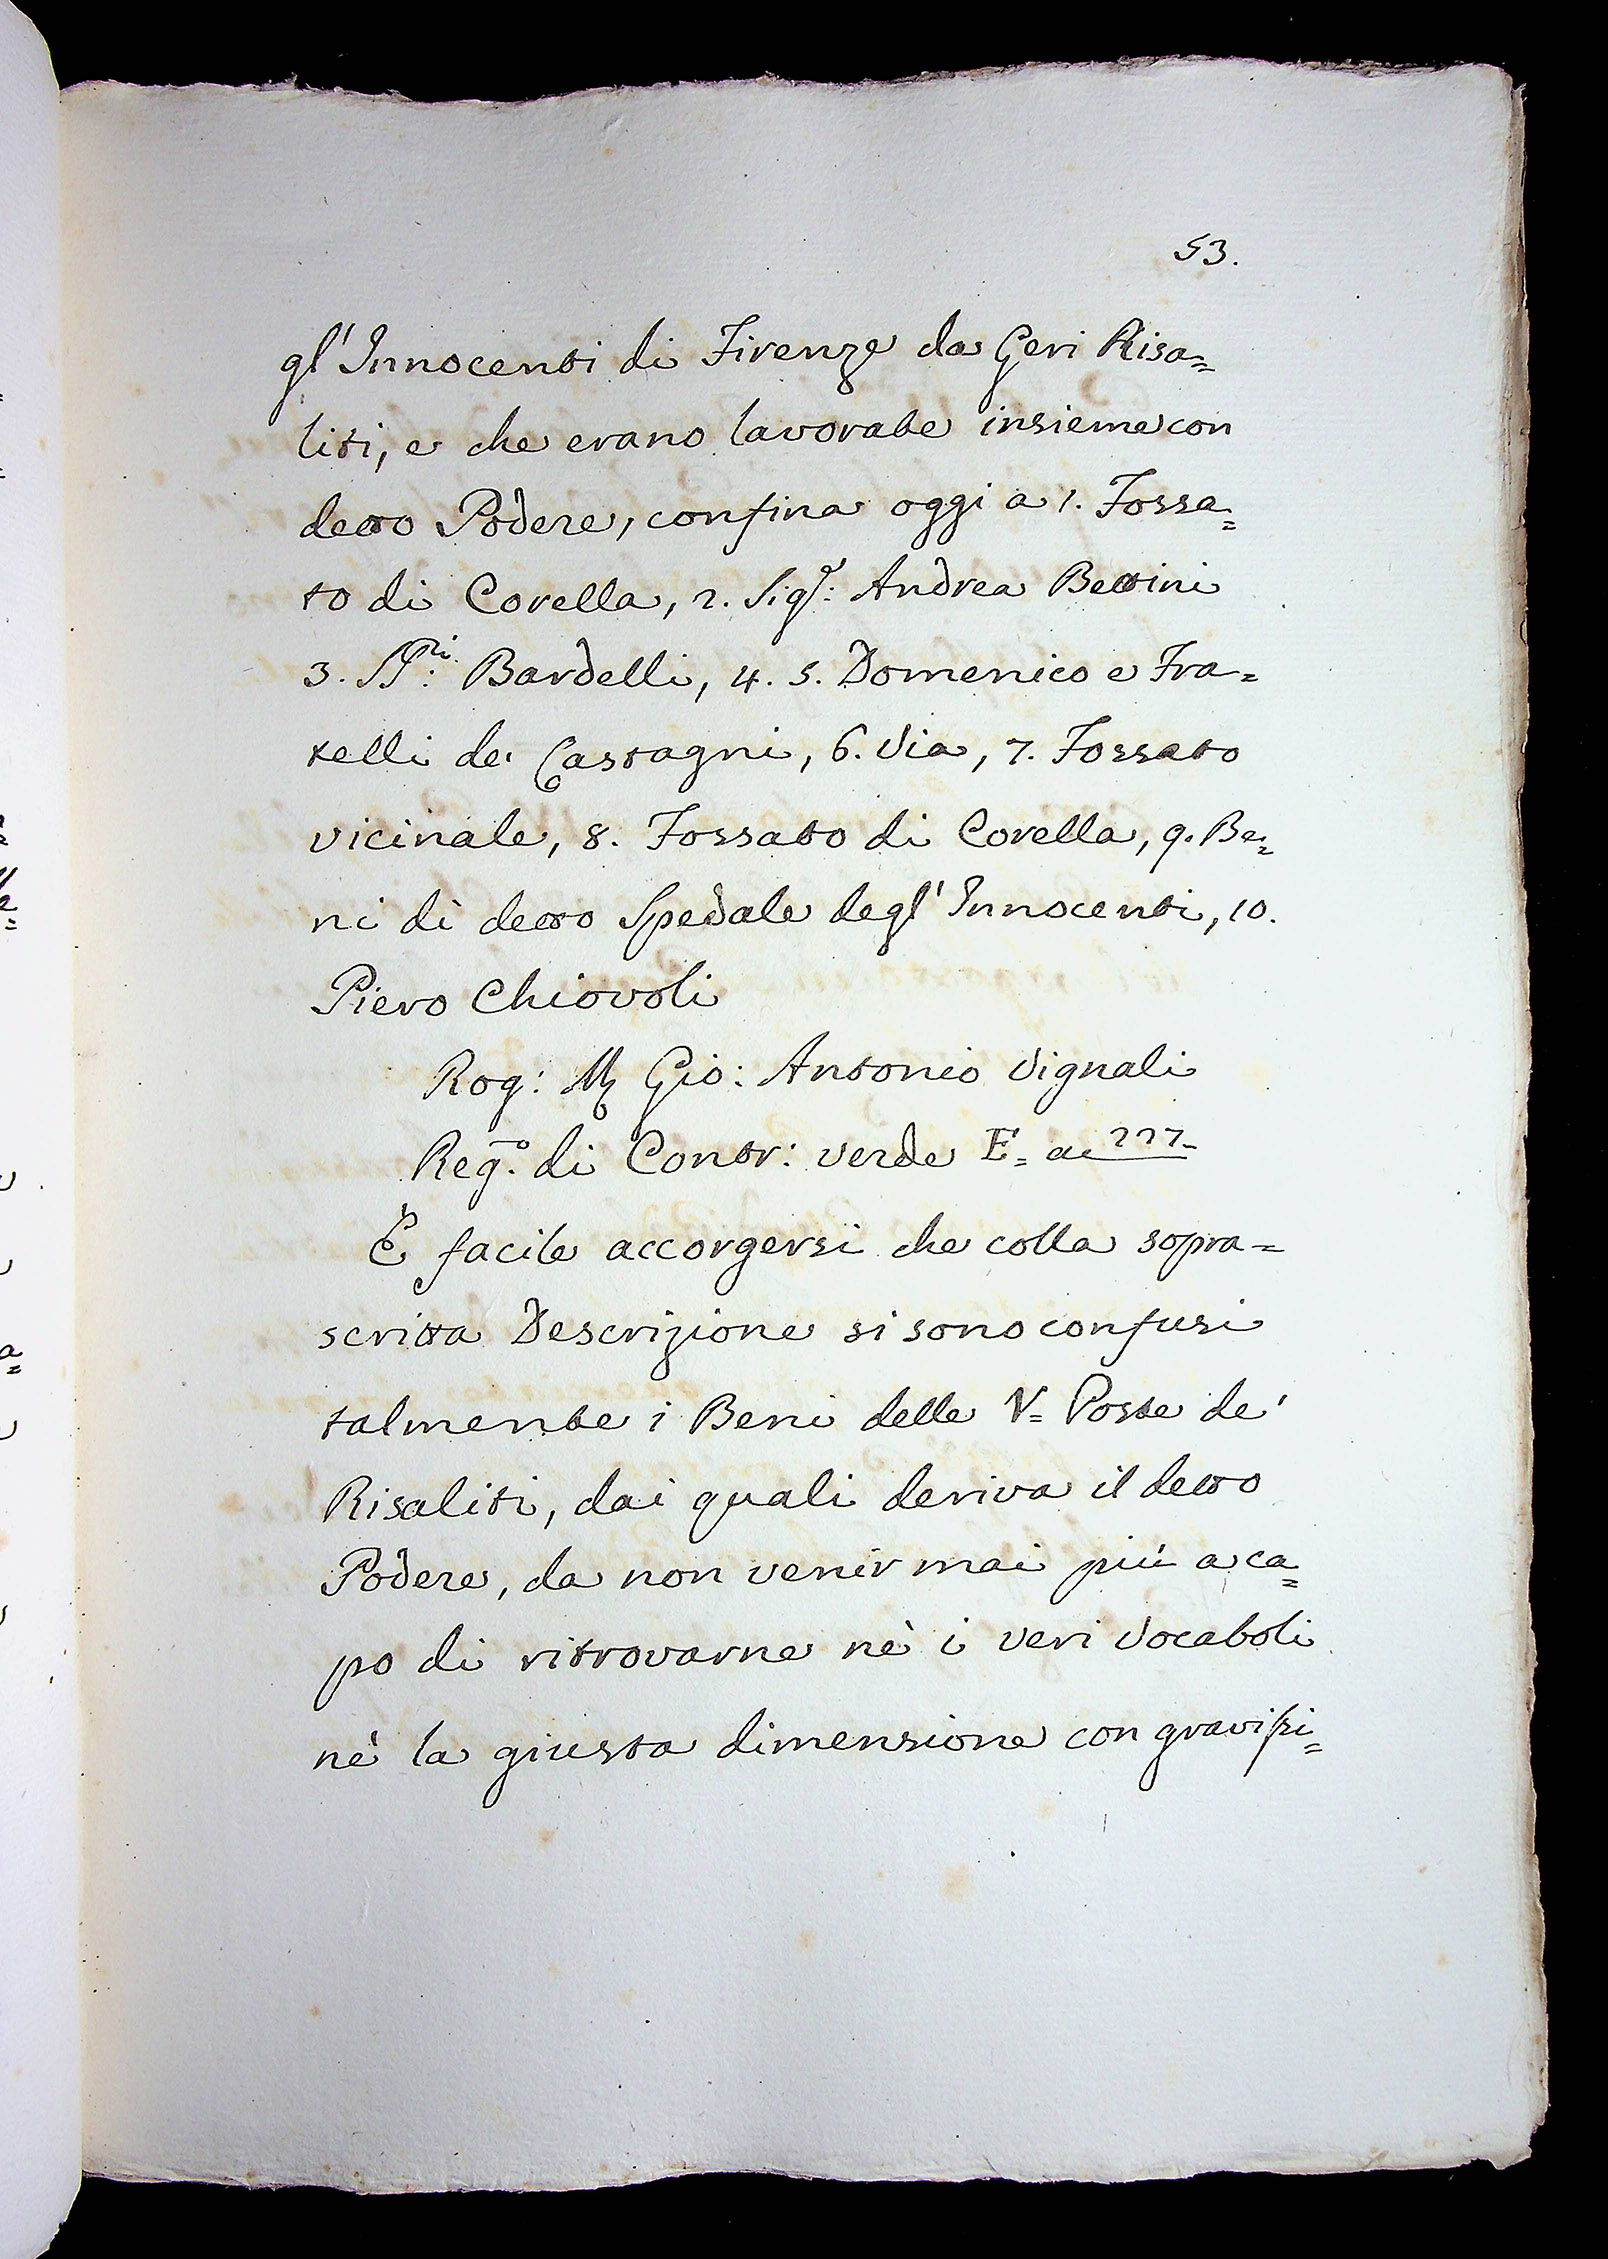 53.
gl'Innocenti di Firenze da Geri Risa=
liti, e che erano lavorate insieme con
detto Podere, confina oggi a 1. Fossa=
to di Corella, 2. Sig.e: Andrea Bettini
3. SS.ri: Bardelli, 4. 5. Domenico e Fra=
telli de' Castagni, 6. Via, 7. Fossato
vicinale, 8. Fossato di Corella, 9. Be=
ni di detto Spedale degl'Innocenti, 10.
Piero Chiovoli
Rog: Gio: Antonio Vignali
Reg.o di Contr: verde E= a 227
È facile accorgersi che colla sopra=
scritta Descrizione si sono confusi
talmente i Beni delle V= Poste de'
Risaliti, dai quali deriva il detto
Podere, da non venir mai più a ca=
po di ritrovarne nè i veri Vocaboli
nè la giusta dimensione con gravissi=